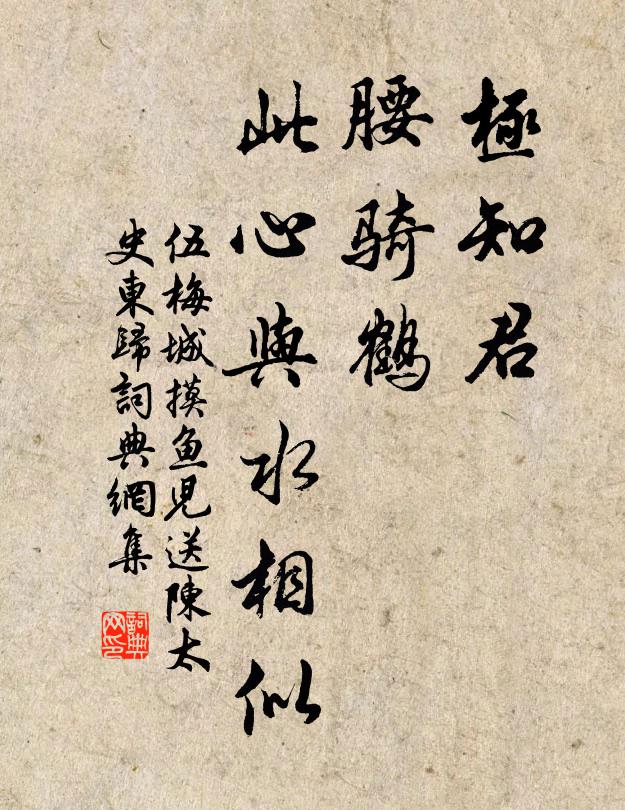 極知君
腰騎鶴
此心與水相似
伍梅城摸鱼児送陳太
史東歸詞典網集
詞典
网印